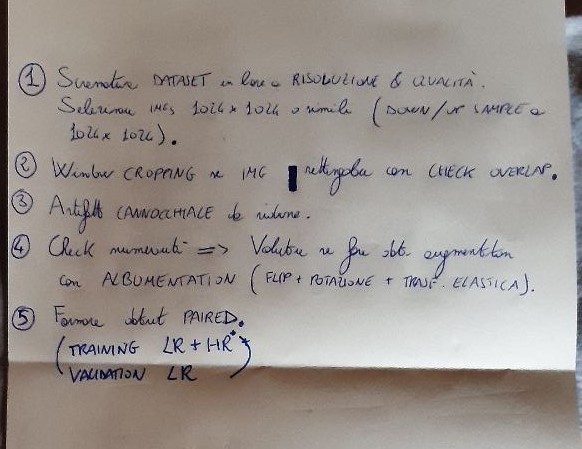 ① Scrematura DATASET in base a RISOLUZIONE & QUALITÀ.
Selezionare IMGs 1024 x 1024 o simile (DOWN/UP SAMPLE a
1024 x 1024).
② Window CROPPING se IMG rettangolare con CHECK OVERLAP.
③ Artefatto CANNOCCHIALE da ridurre.
④ Check numerosità => Valutare se fare data augmentation
con ALBUMENTATION (FLIP + ROTAZIONE + TRASF. ELASTICA).
⑤ Formare dataset PAIRED.
(TRAINING LR + HR
VALIDATION LR)